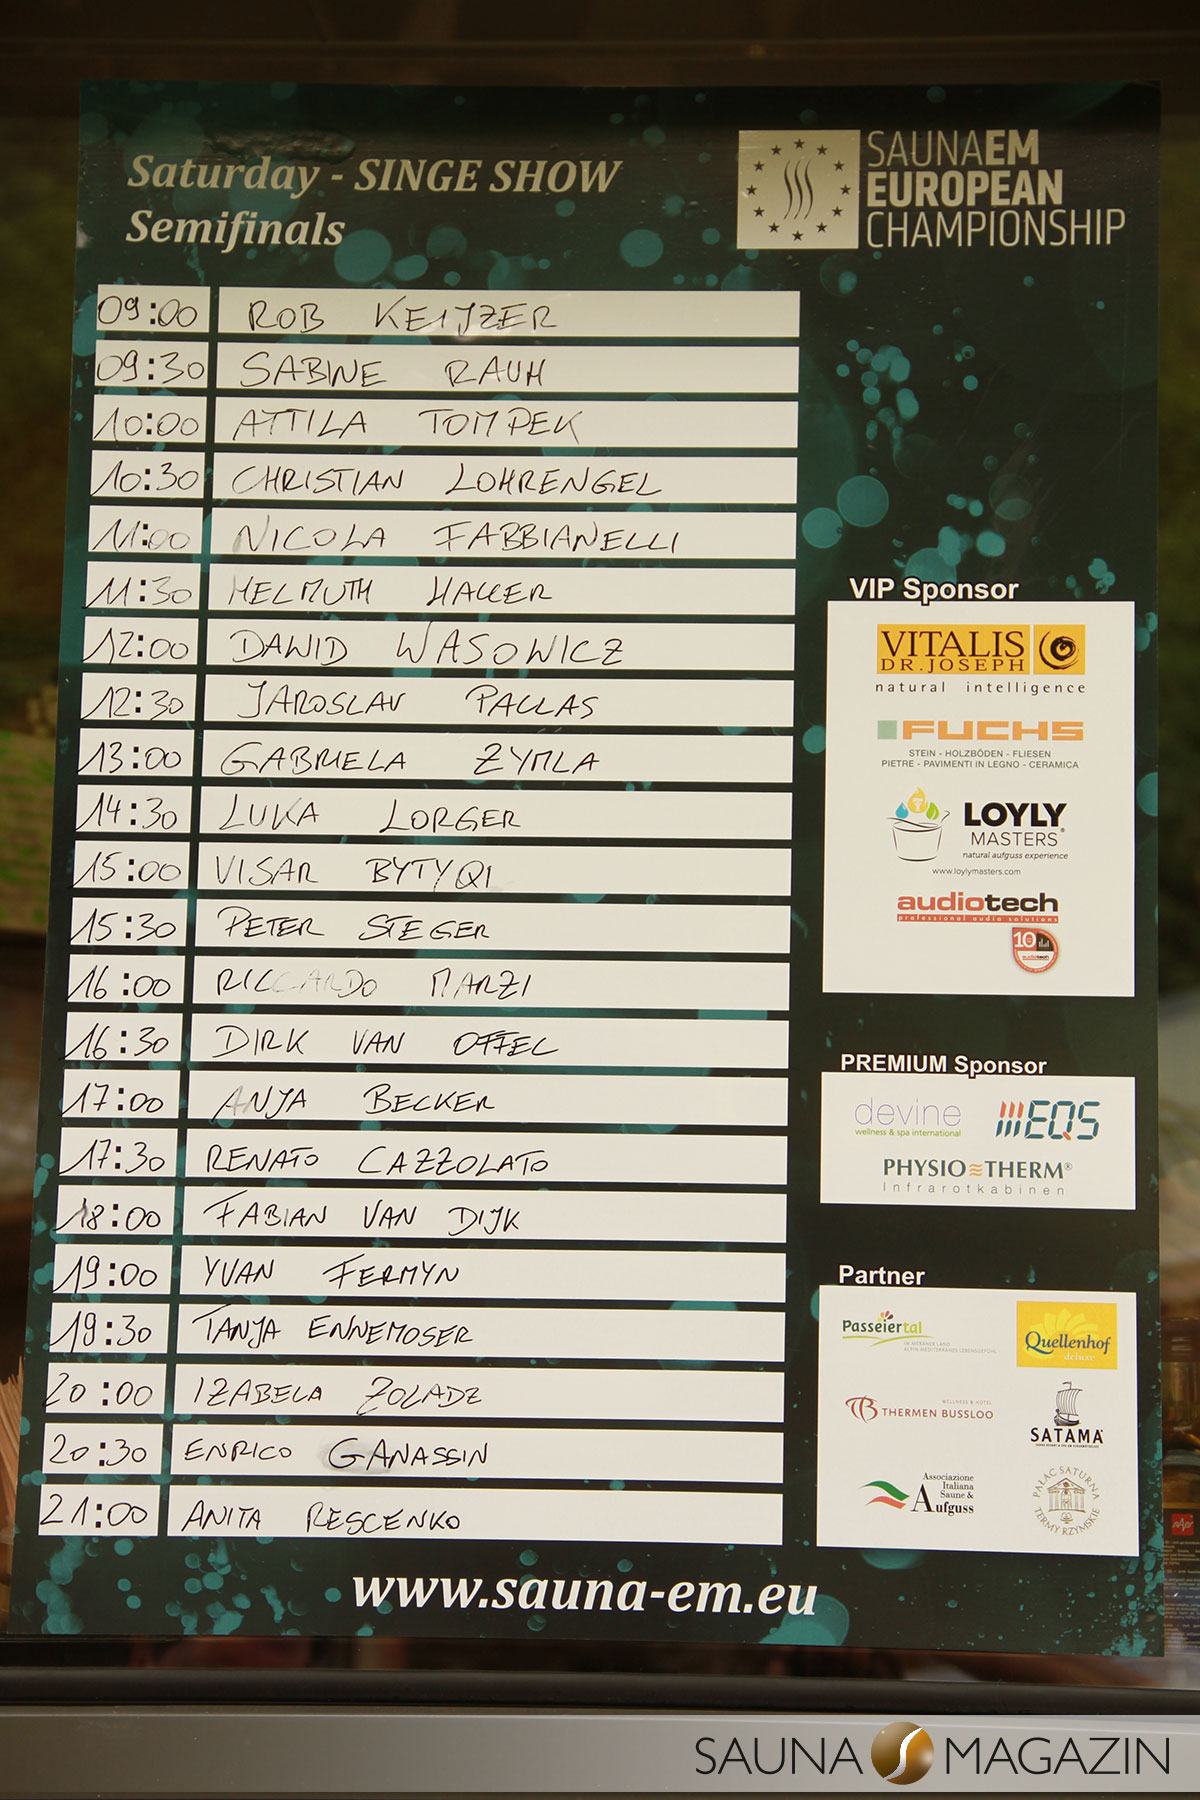 Saturday - SINGE SHOW
Semifinals
SAUNAEM
EUROPEAN
CHAMPIONSHIP
09:00 ROB KEIJZER
09:30 SABINE RAUH
10:00 ATTILA TOMPEK
10:30 CHRISTIAN LOHRENGEL
11:00 NICOLA FABBIANELLI
11:30 HELMUTH HALLER
12:00 DAWID WASOWICZ
12:30 JAROSLAV PALLAS
13:00 GABRIELA ZYMLA
14:30 LUKA LORGER
15:00 VISAR BYTYQI
15:30 PETER STEGER
16:00 RICCARDO MARZI
16:30 DIRK VAN OFFEL
17:00 ANJA BECKER
17:30 RENATO CAZZOLATO
18:00 FABIAN VAN DIJK
19:00 YVAN FERMYN
19:30 TANJA ENNEMOSER
20:00 IZABELA ZOLADZ
20:30 ENRICO GANASSIN
21:00 ANITA RESCENKO
VIP Sponsor
VITALIS
DR.JOSEPH
natural intelligence
FUCHS
STEIN - HOLZBÖDEN - FLIESEN
PIETRE - PAVIMENTI IN LEGNO - CERAMICA
LOYLY
MASTERS®
natural aufguss experience
www.loylymasters.com
audiotech
professional audio solutions
10
audiotech
PREMIUM Sponsor
devine
wellness & spa international
EQS
PHYSIO THERM®
Infrarotkabinen
Partner
Passeiertal
IN MERANER LAND
ALPIN-MEDITERRANES LEBENSGEFÜHL
Quellenhof
deluxe
WELLNESS & HOTEL
THERMEN BUSSLOO
SATAMA
Associazione
Italiana
Saune &
Aufguss
PALAC SATURNA
TERMY RZYMSKIE
www.sauna-em.eu
SAUNA MAGAZIN